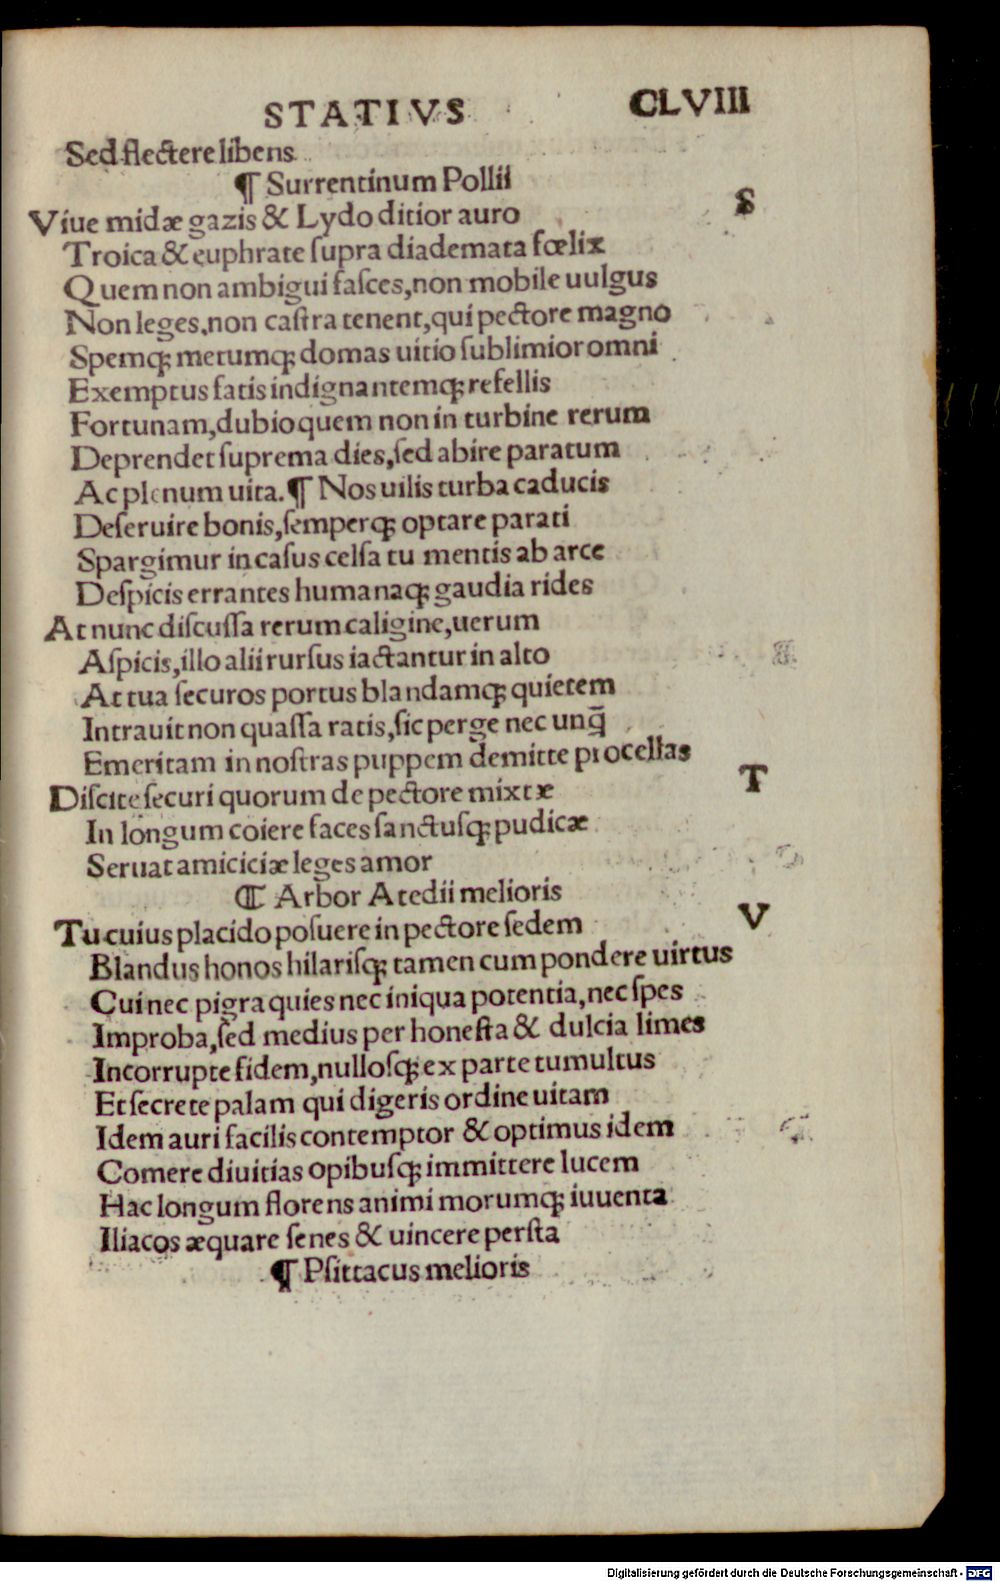 STATIVS CLVIII
Sed flectere libens
¶ Surrentinum Pollii
Viue midæ gazis & Lydo ditior auro S
Troica & euphrate ſupra diademata fœlix
Quem non ambigui faſces, non mobile uulgus
Non leges, non caſtra tenent, qui pectore magno
Spemqꝫ metumqꝫ domas uitio ſublimior omni
Exemptus fatis indignantemqꝫ refellis
Fortunam, dubio quem non in turbine rerum
Deprendet ſuprema dies, ſed abire paratum
Ac plenum uita. ¶ Nos uilis turba caducis
Deſeruire bonis, ſemperqꝫ optare parati
Spargimur in caſus celſa tu mentis ab arce
Deſpicis errantes humanaqꝫ gaudia rides
At nunc diſcuſſa rerum caligine, uerum
Aſpicis, illo alii rurſus iactantur in alto
At tua ſecuros portus blandamqꝫ quietem
Intrauit non quaſſa ratis, ſic perge nec unq̃
Emeritam in noſtras puppem demitte procellas
Diſcite ſecuri quorum de pectore mixtæ T
In longum coiere faces ſanctuſqꝫ pudicæ
Seruat amiciciæ leges amor
¶ Arbor Atedii melioris
Tu cuius placido poſuere in pectore ſedem V
Blandus honos hilariſqꝫ tamen cum pondere uirtus
Cui nec pigra quies nec iniqua potentia, nec ſpes
Improba, ſed medius per honeſta & dulcia limes
Incorrupte fidem, nulloſqꝫ ex parte tumultus
Et ſecrete palam qui digeris ordine uitam
Idem auri facilis contemptor & optimus idem
Comere diuitias opibuſqꝫ immittere lucem
Hac longum florens animi morumqꝫ iuuenta
Iliacos æquare ſenes & uincere perſta
¶ Pſittacus melioris
Digitalisierung gefördert durch die Deutsche Forschungsgemeinschaft - DFG